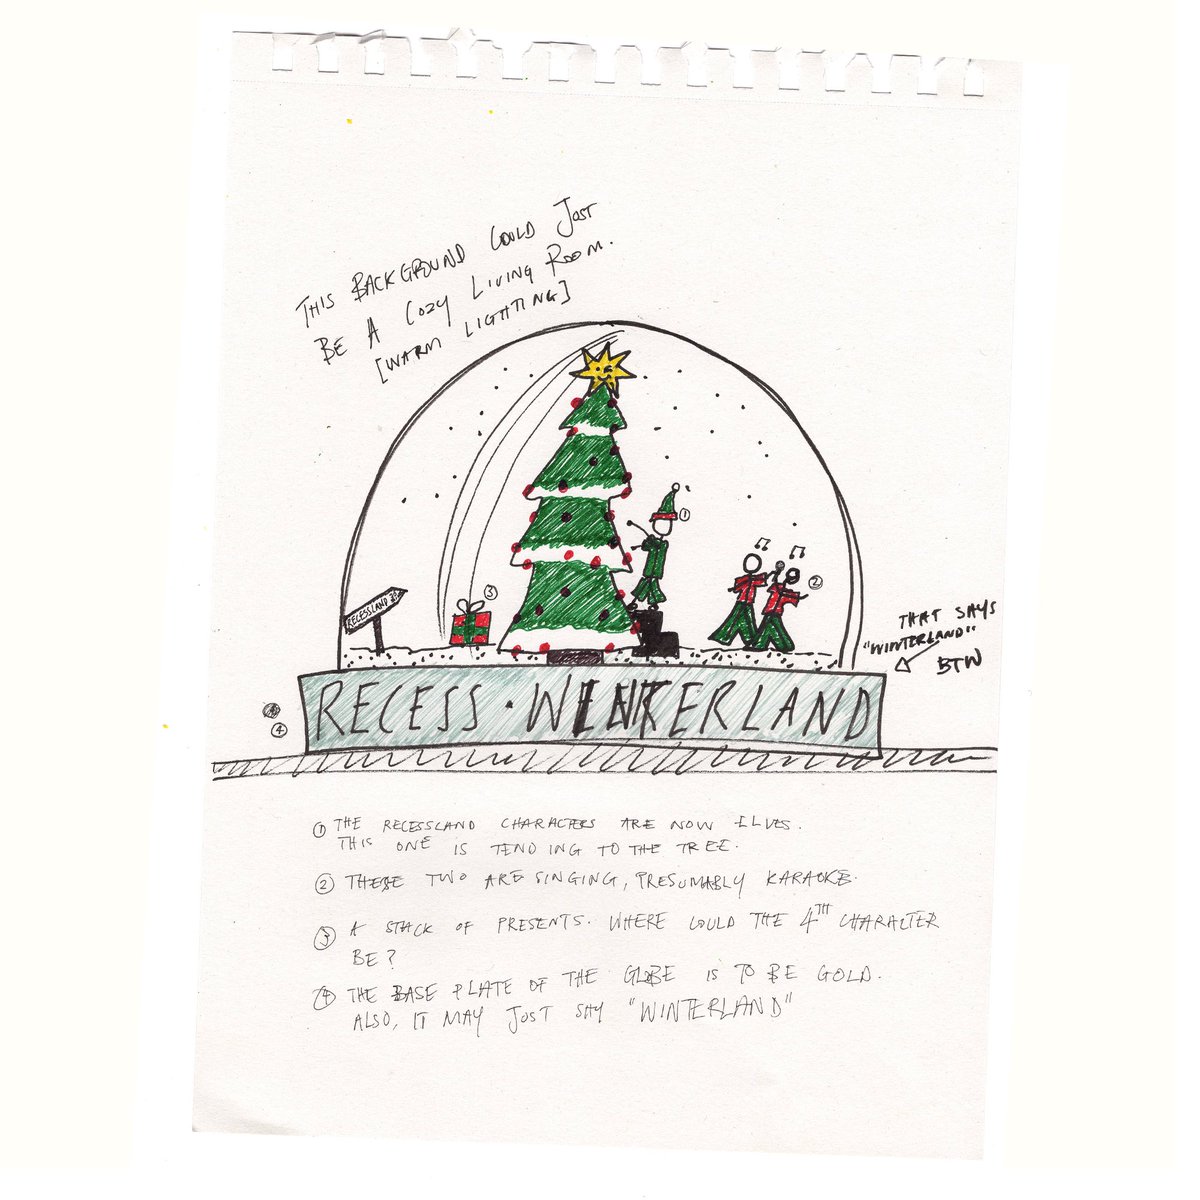 THIS BACKGROUND COULD JUST
BE A COZY LIVING ROOM.
[WARM LIGHTING]
①
③
②
RECESSLAND
THAT SAYS
"WINTERLAND"
BTW
RECESS · WINTERLAND
④
① THE RECESSLAND CHARACTERS ARE NOW ELVES.
THIS ONE IS TENDING TO THE TREE.
② THESE TWO ARE SINGING, PRESUMABLY KARAOKE.
③ A STACK OF PRESENTS. WHERE COULD THE 4TH CHARACTER
BE?
④ THE BASE PLATE OF THE GLOBE IS TO BE GOLD.
ALSO, IT MAY JUST SAY "WINTERLAND"